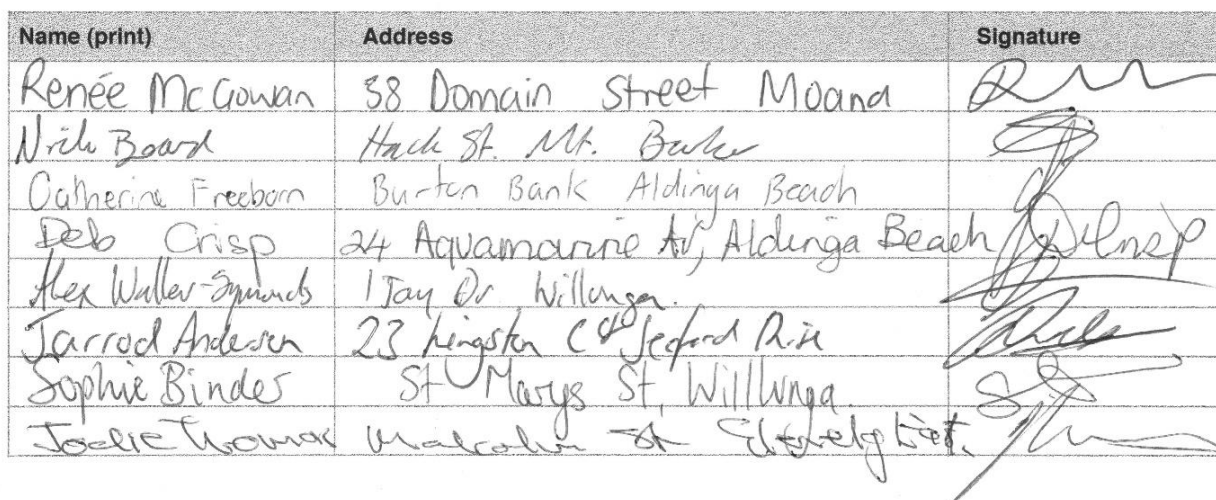 Name (print) Address Signature
Renée McGowan 38 Domain Street Moana
Board Hack St. Mt. Barker
Catherine Freeborn Burton Bank Aldinga Beach
Deb Crisp 24 Aquamarine Av, Aldinga Beach DCrisp
Alex Waller-Symonds 1 Jay Dr Willunga.
Jarrod Andersen 23 Kingston Ct Seaford Rise
Sophie Binder St Marys St, Willunga.
Thomas Malcolm St